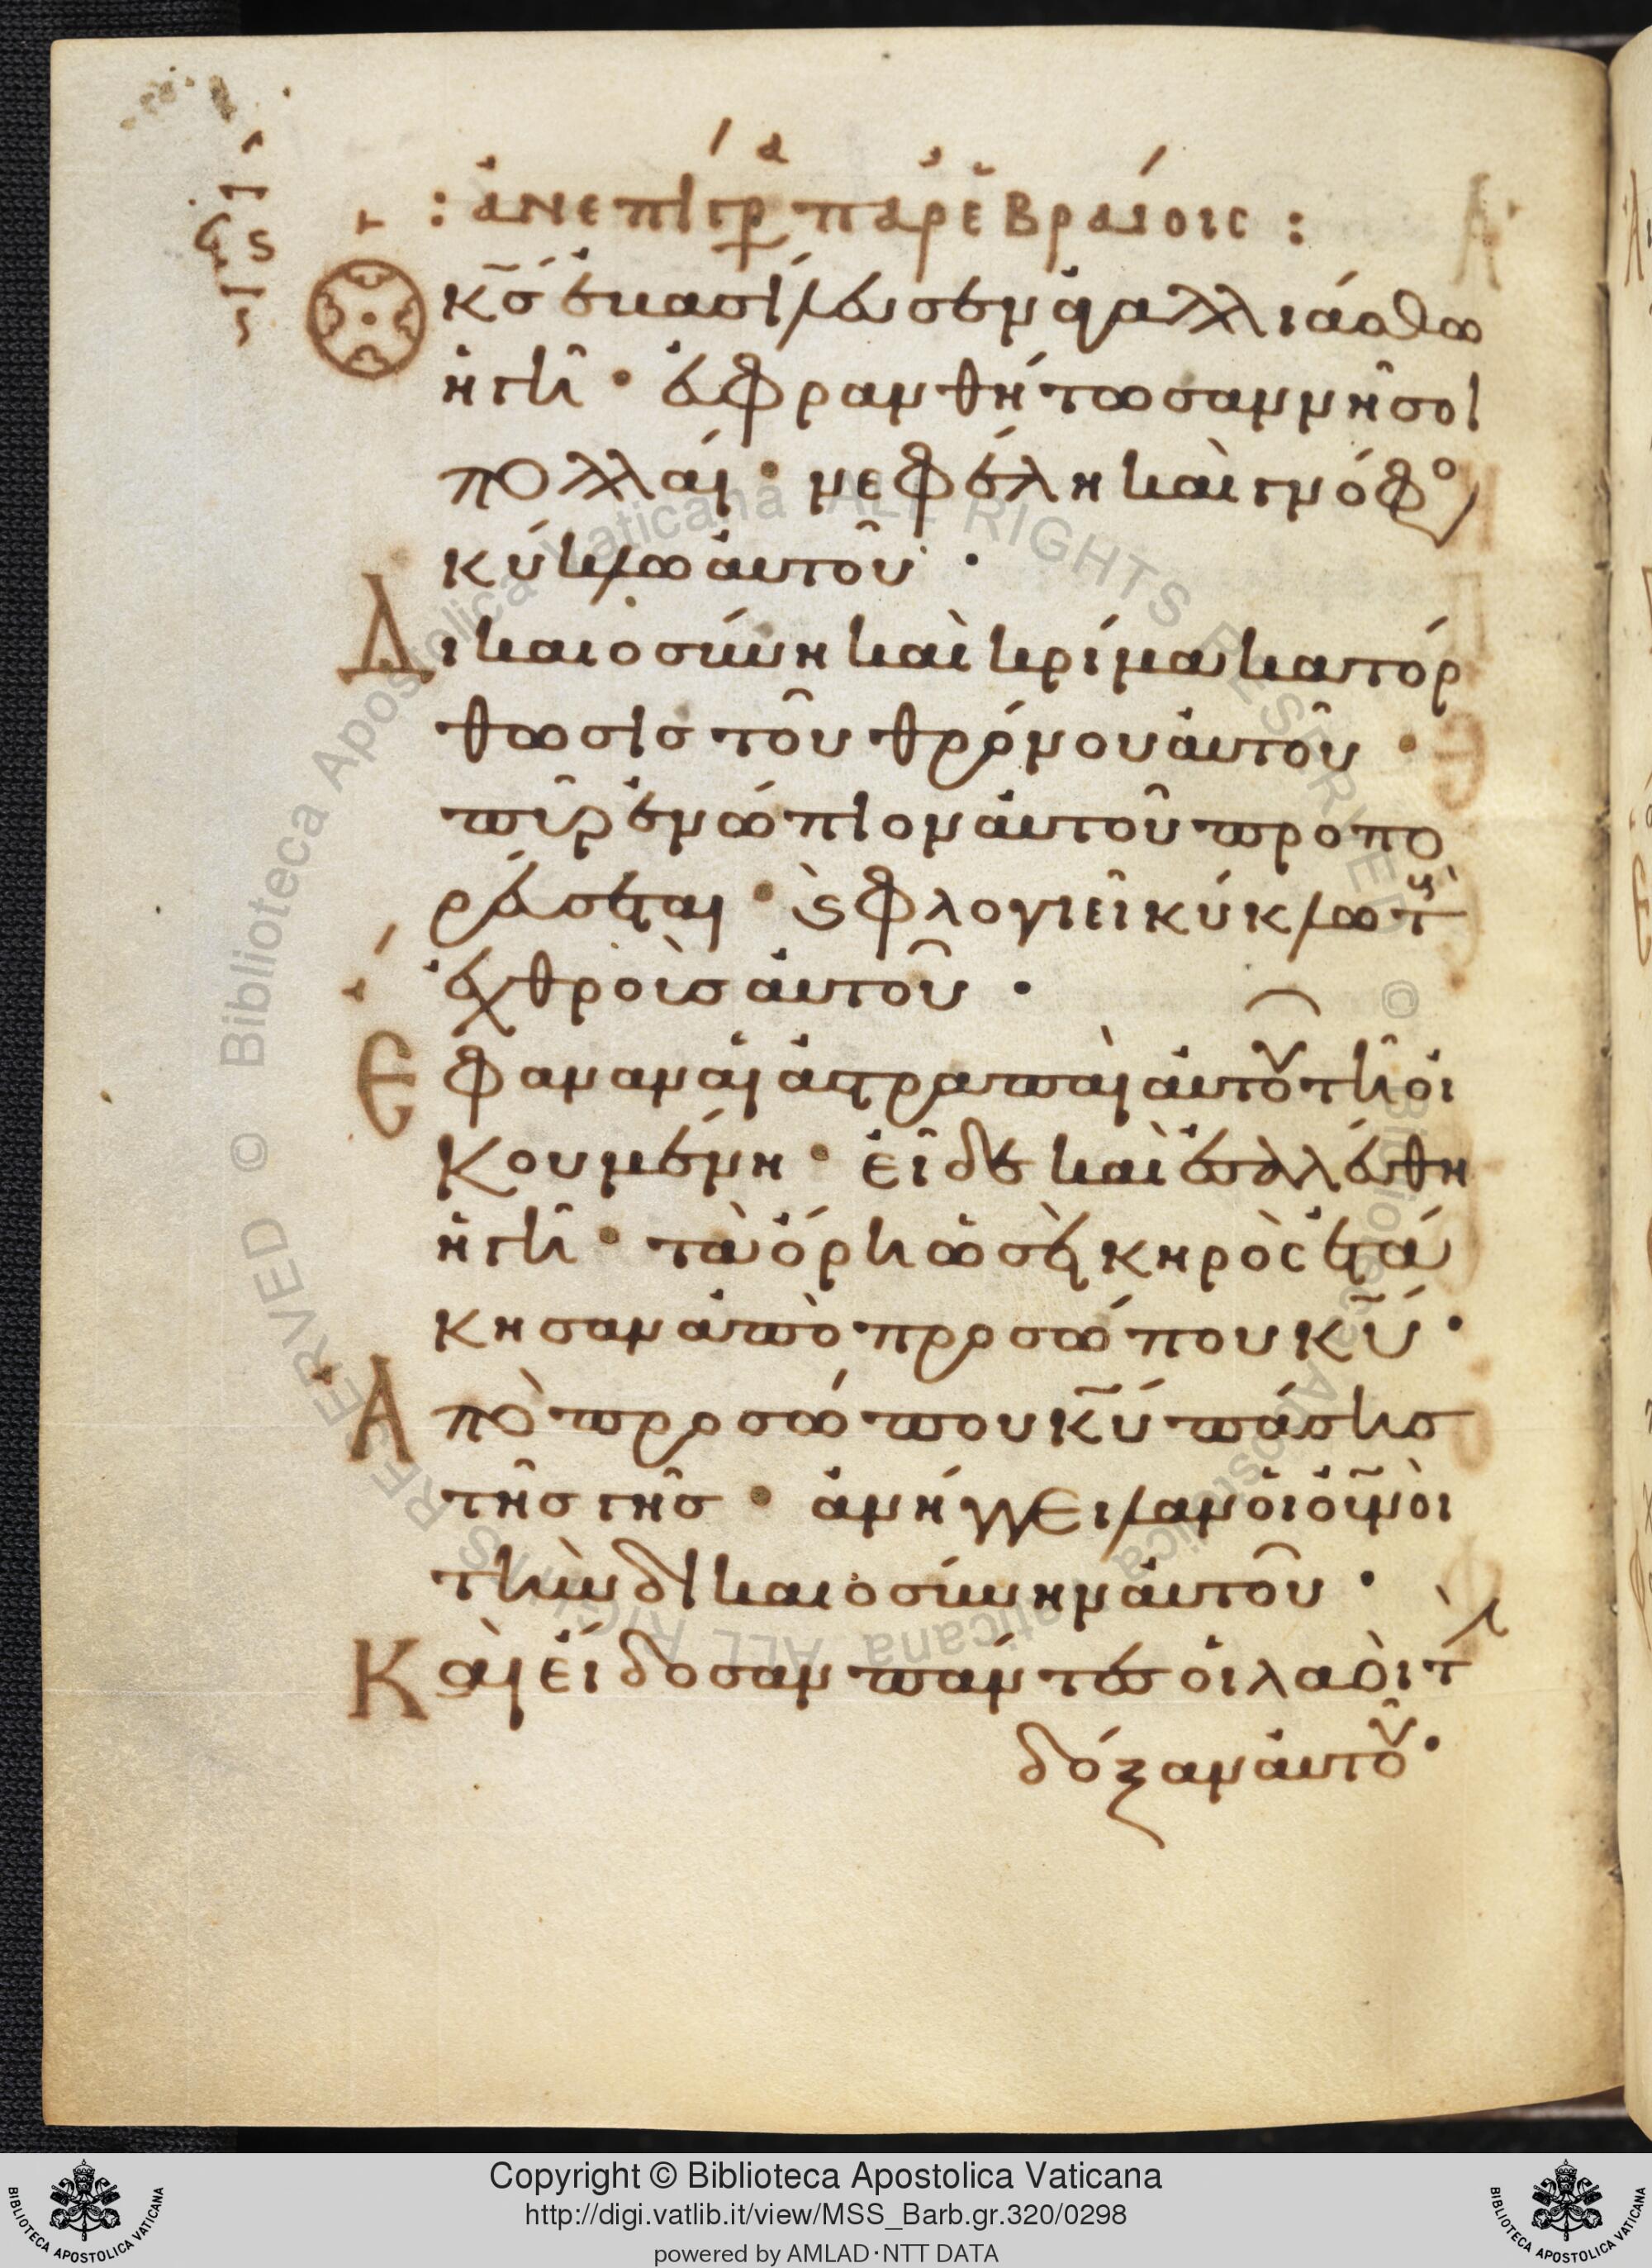 : ἀνεπίγρ παρ ἑβραίοις :
Ο κς ἐβασίλευσεν ἀγαλλιάσθω
ἡ γῆ · εὐφρανθήτωσαν νῆσοι
πολλαί · νεφέλη καὶ γνόφο
κύκλω αὐτοῦ ·
Δικαιοσύνη καὶ κρίμα κατόρ
θωσις τοῦ θρόνου αὐτοῦ ·
πῦρ ἐνώπιον αὐτοῦ προπο
ρεύσεται · ϗ φλογιεῖ κύκλω τ
ἐχθροὺς αὐτοῦ ·
Εφαναν αἱ ἀστραπαὶ αὐτοῦ τῆ οἰ
κουμένη · εἶδε καὶ ἐσαλεύθη
ἡ γῆ · τὰ ὄρη ὡσεὶ κηρὸς ἐτά
κησαν ἀπὸ προσώπου κυ ·
Ἀπὸ προσώπου κυ πάσης
τῆς γῆς · ἀνήγγειλαν οἱ οὐνοὶ
τὴν δικαιοσύνην αὐτοῦ ·
Καὶ εἴδοσαν πάντες οἱ λαοὶ τ
δόξαν αὐτοῦ ·
Copyright © Biblioteca Apostolica Vaticana
http://digi.vatlib.it/view/MSS_Barb.gr.320/0298
powered by AMLAD·NTT DATA